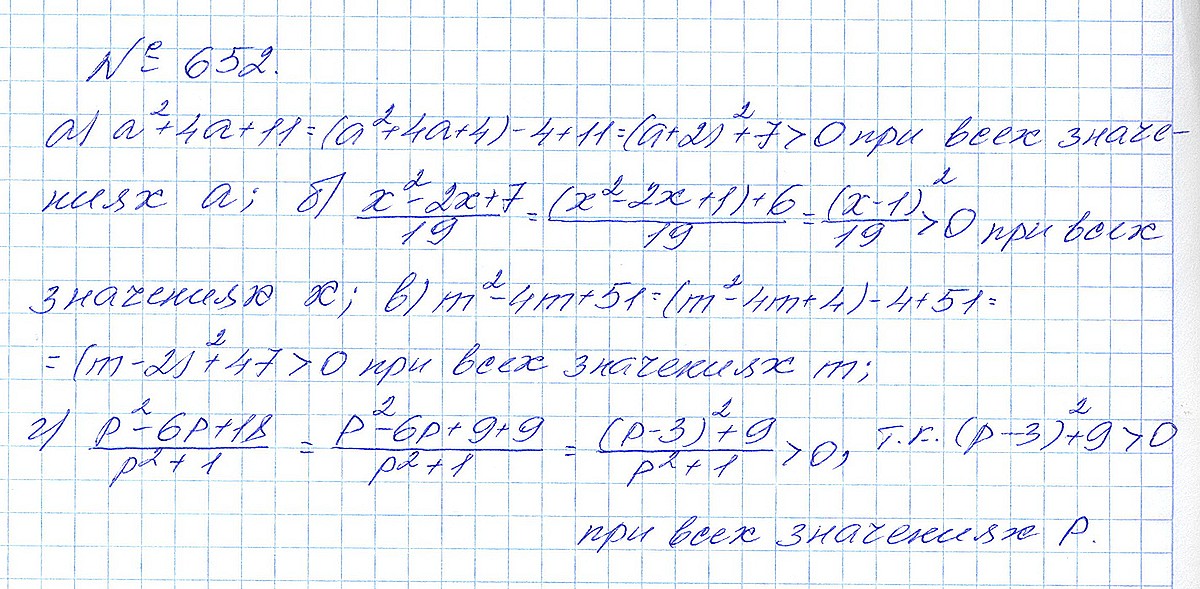 № 652.
а) a²+4a+11=(a²+4a+4)-4+11=(a+2)²+7>0 при всех значе-
ниях a; б) (x²-2x+7)/19=((x²-2x+1)+6)/19=(x-1)²/19>0 при всех
значениях x; в) m²-4m+51=(m²-4m+4)-4+51=
=(m-2)²+47>0 при всех значениях m;
г) (p²-6p+18)/(p²+1)=(p²-6p+9+9)/(p²+1)=((p-3)²+9)/(p²+1)>0, т.к. (p-3)²+9>0
при всех значениях p.